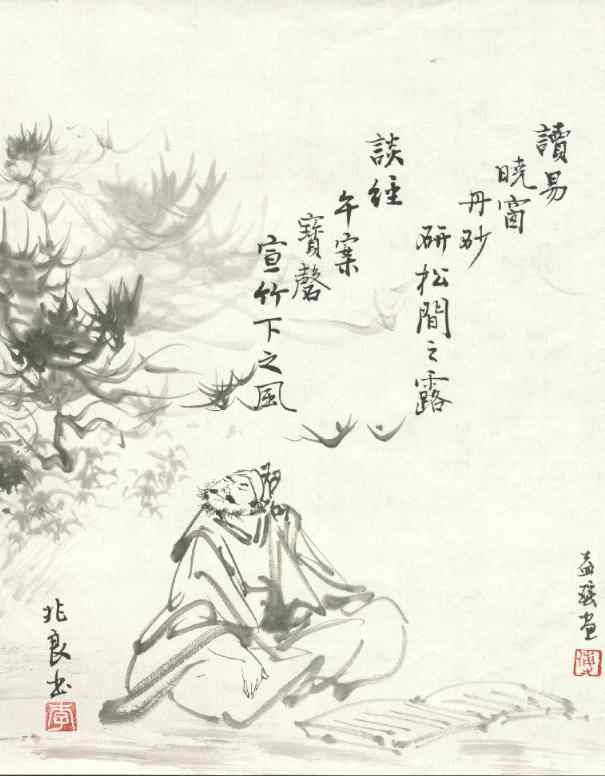 讀易
曉窗
丹砂
研松間之露
談經
午案
寶磬
宣竹下之風
兆良书
李